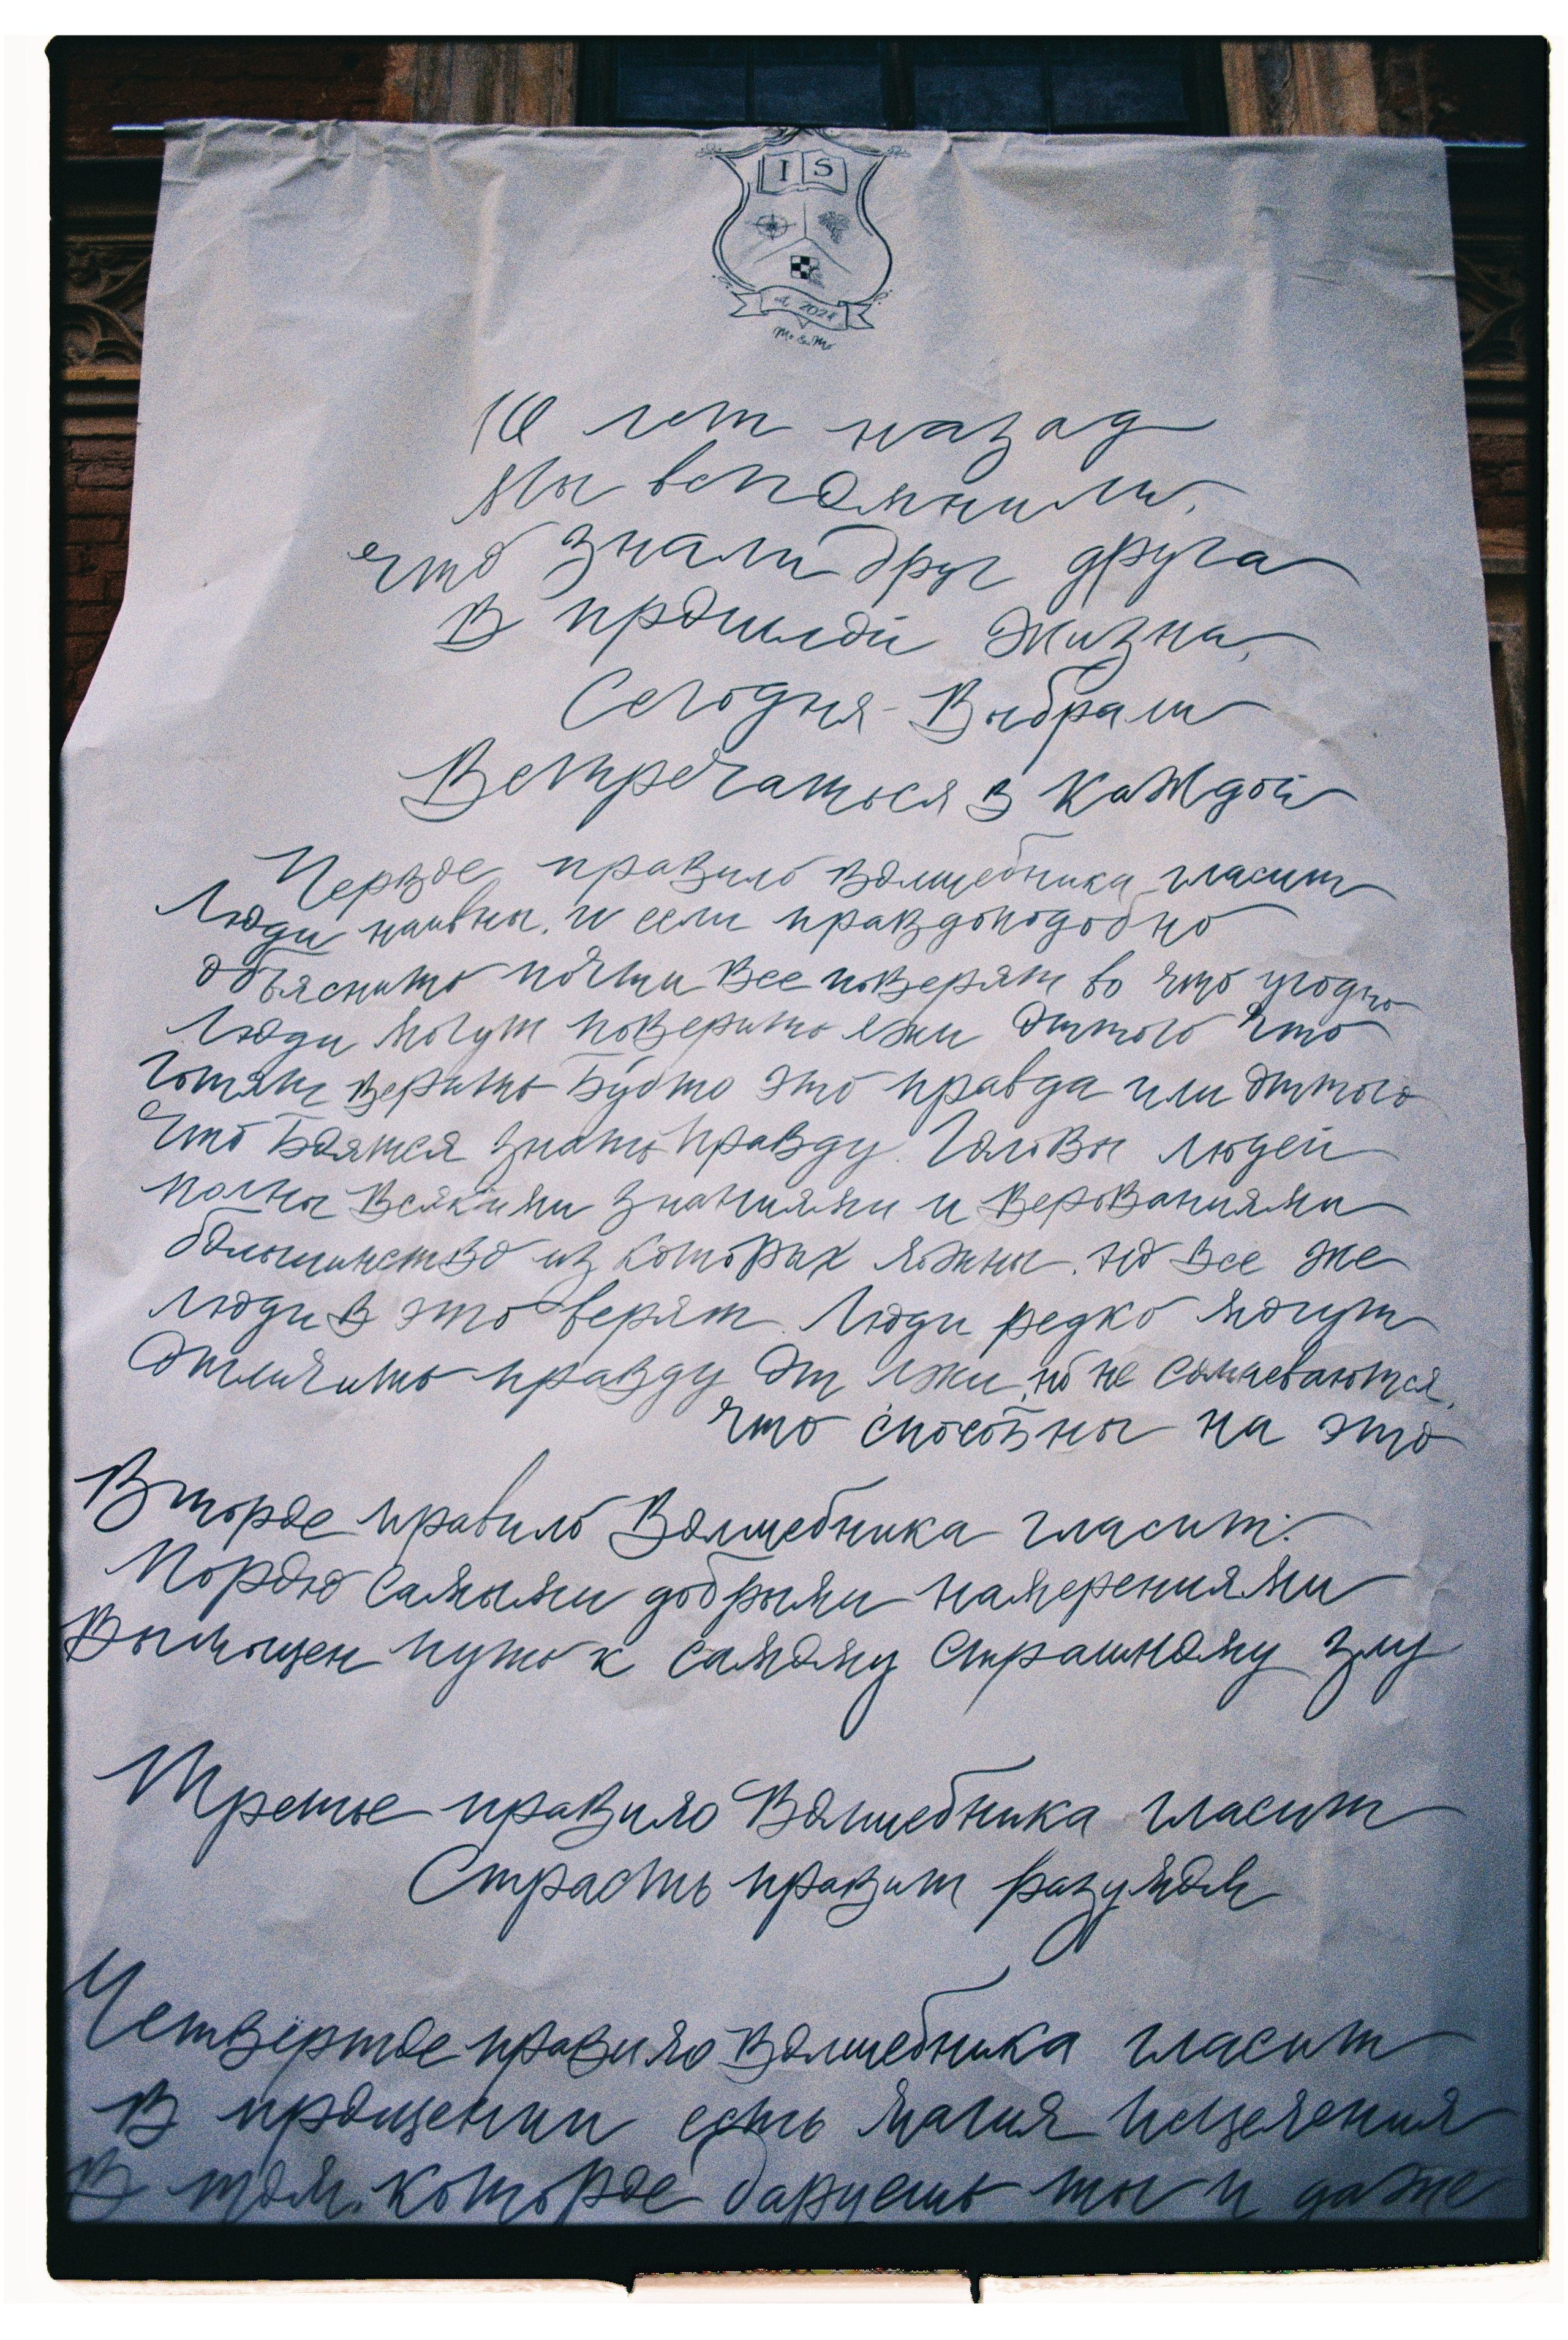 I S
est. 2024
Mr & Mr
10 лет назад
мы вспомнили,
что знали друг друга
в прошлой жизни,
Сегодня - Выбрали
Встречаться в каждой
Первое правило волшебника гласит
Люди наивны, и если правдоподобно
объяснить почти все поверят во что угодно
Люди могут поверить лжи оттого что
хотят верить будто это правда или оттого
что боятся знать правду. Головы людей
полны всякими знаниями и верованиями
большинство из которых ложны, но все же
люди в это верят. Люди редко могут
отличить правду от лжи, но не сомневаются,
что способны на это
Второе правило Волшебника гласит:
Порою самыми добрыми намерениями
вымощен путь к самому страшному злу
Третье правило Волшебника гласит
Страсть правит разумом
Четвёртое правило волшебника гласит
В прощении есть магия исцеления
В том, которое даруешь ты и даже